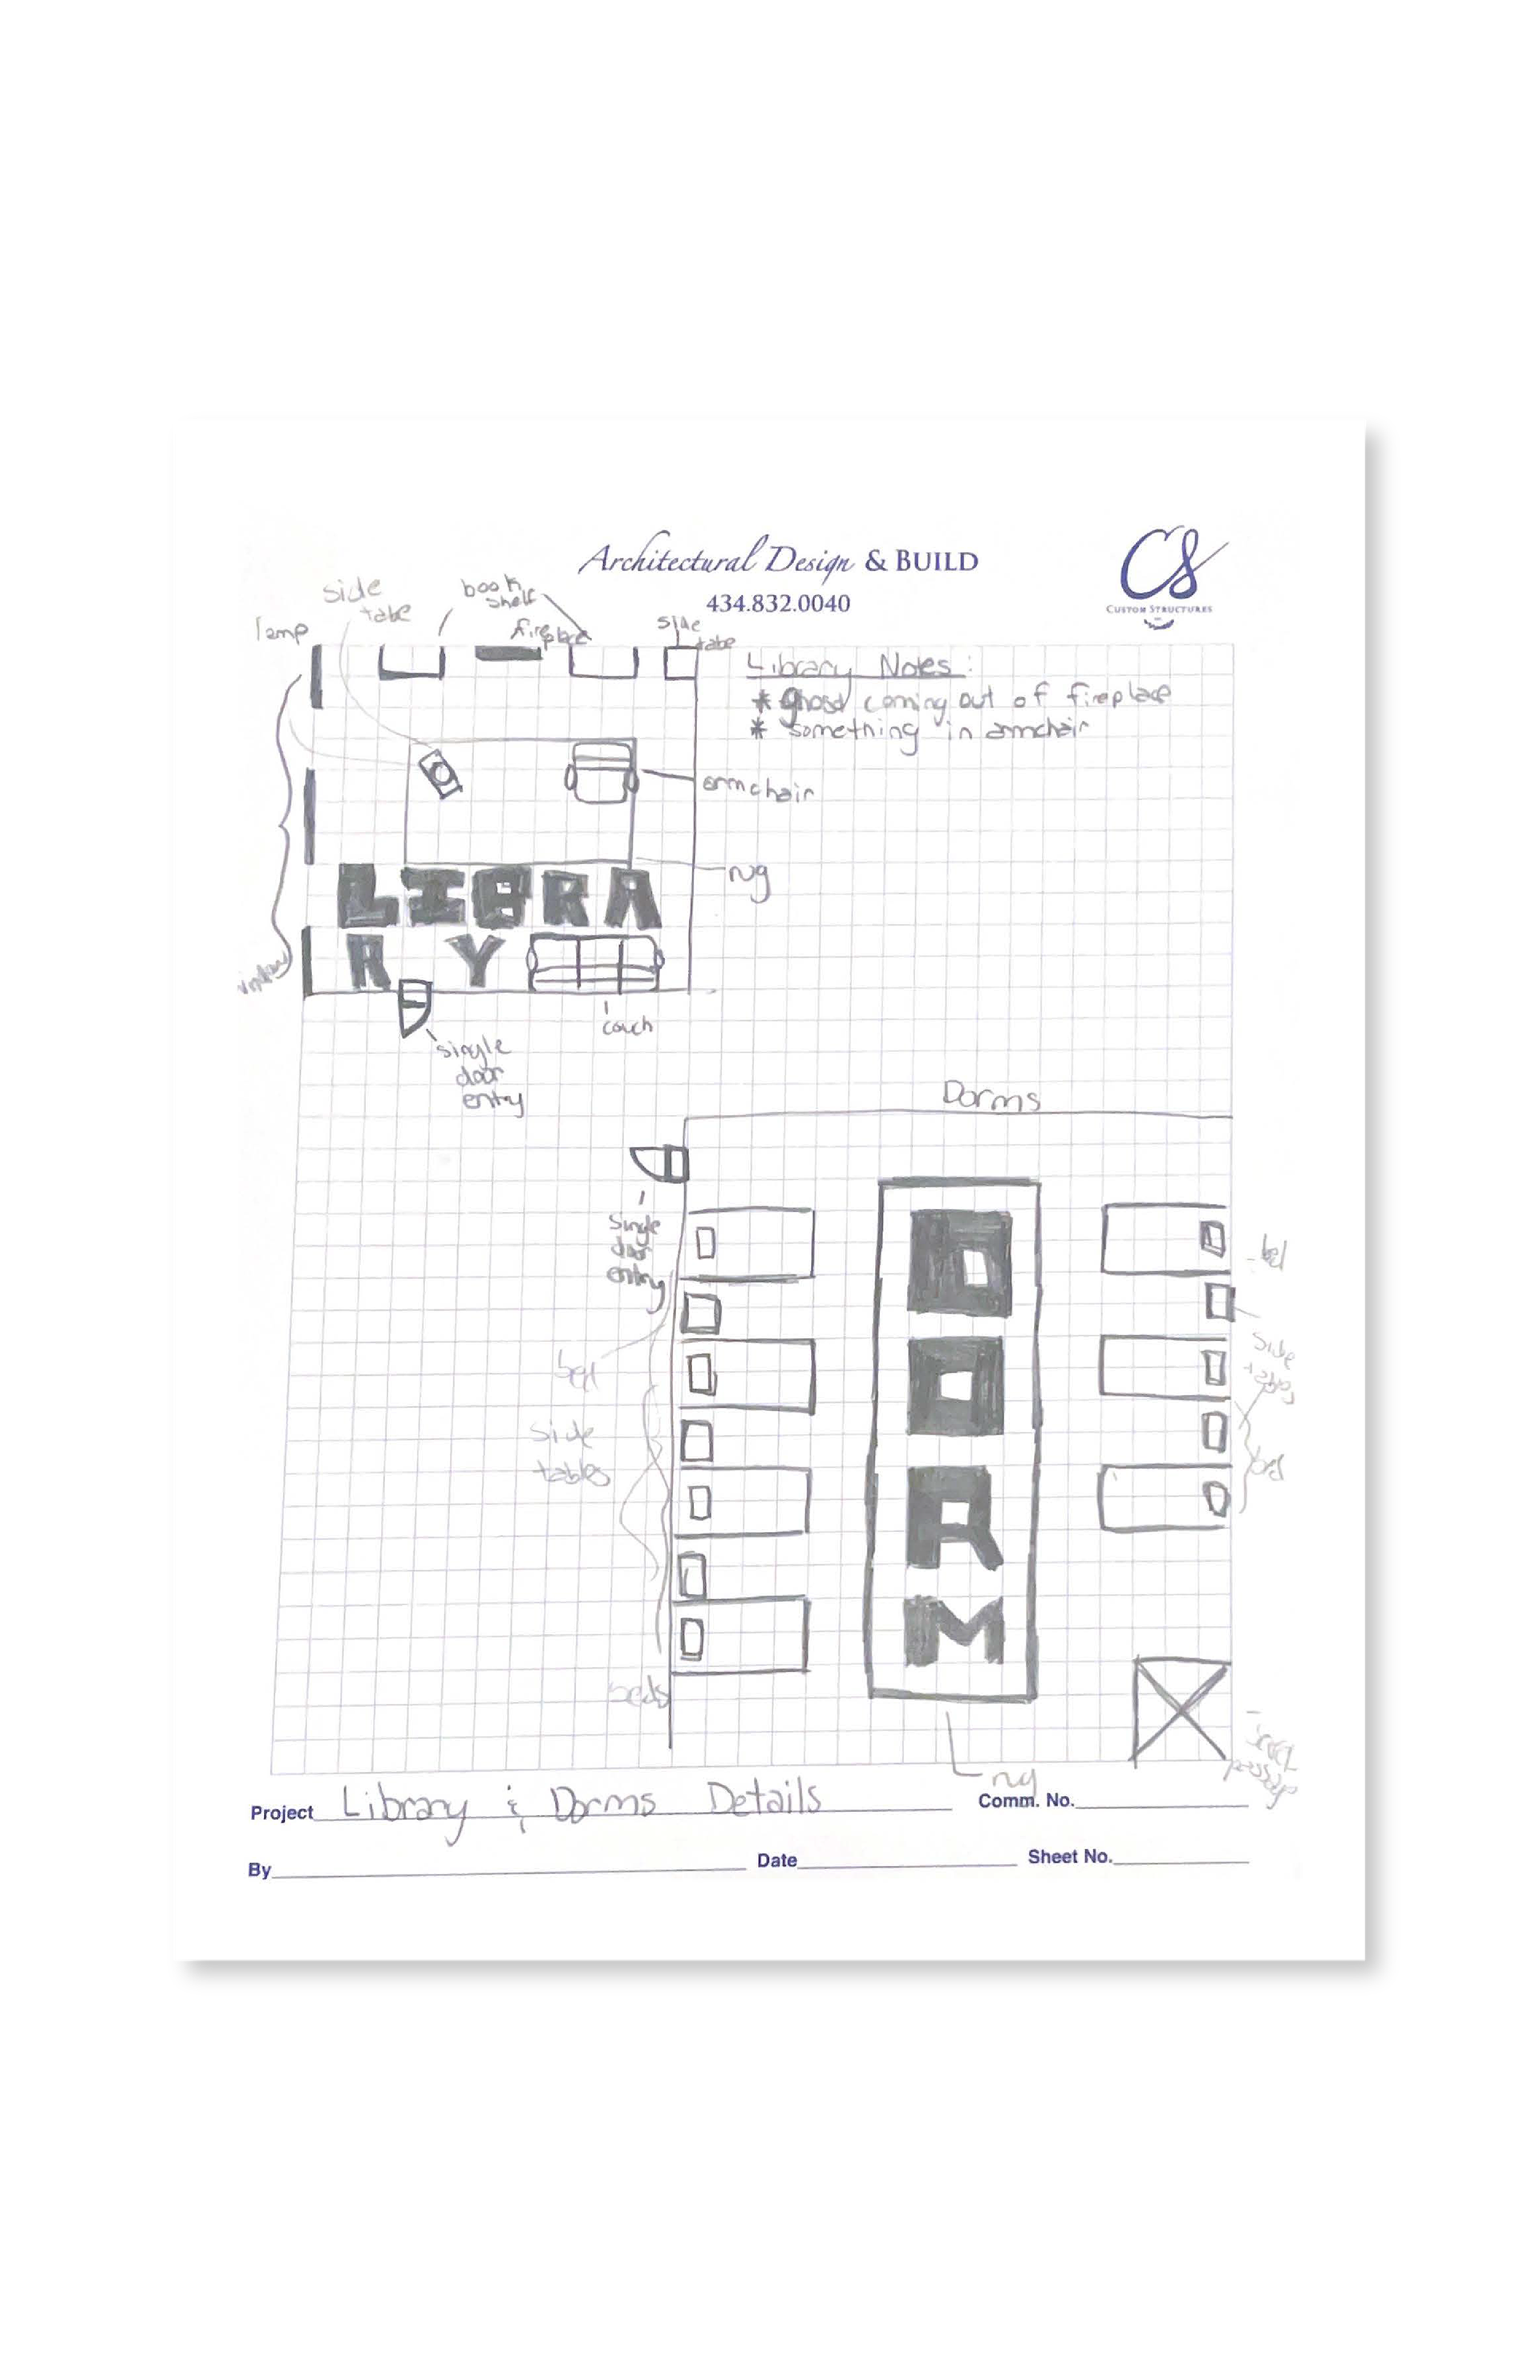 Architectural Design & BUILD
434.832.0040
CS
CUSTOM STRUCTURES
side
table
book
shelf
lamp
fireplace
side
table
Library Notes:
* ghost coming out of fireplace
* something in armchair
armchair
rug
LIBRA
RY
couch
single
door
entry
Dorms
single
door
entry
bed
side
tables
beds
DORM
bed
side
tables
bed
rug
Project Library & Dorms Details Comm. No.
By Date Sheet No.